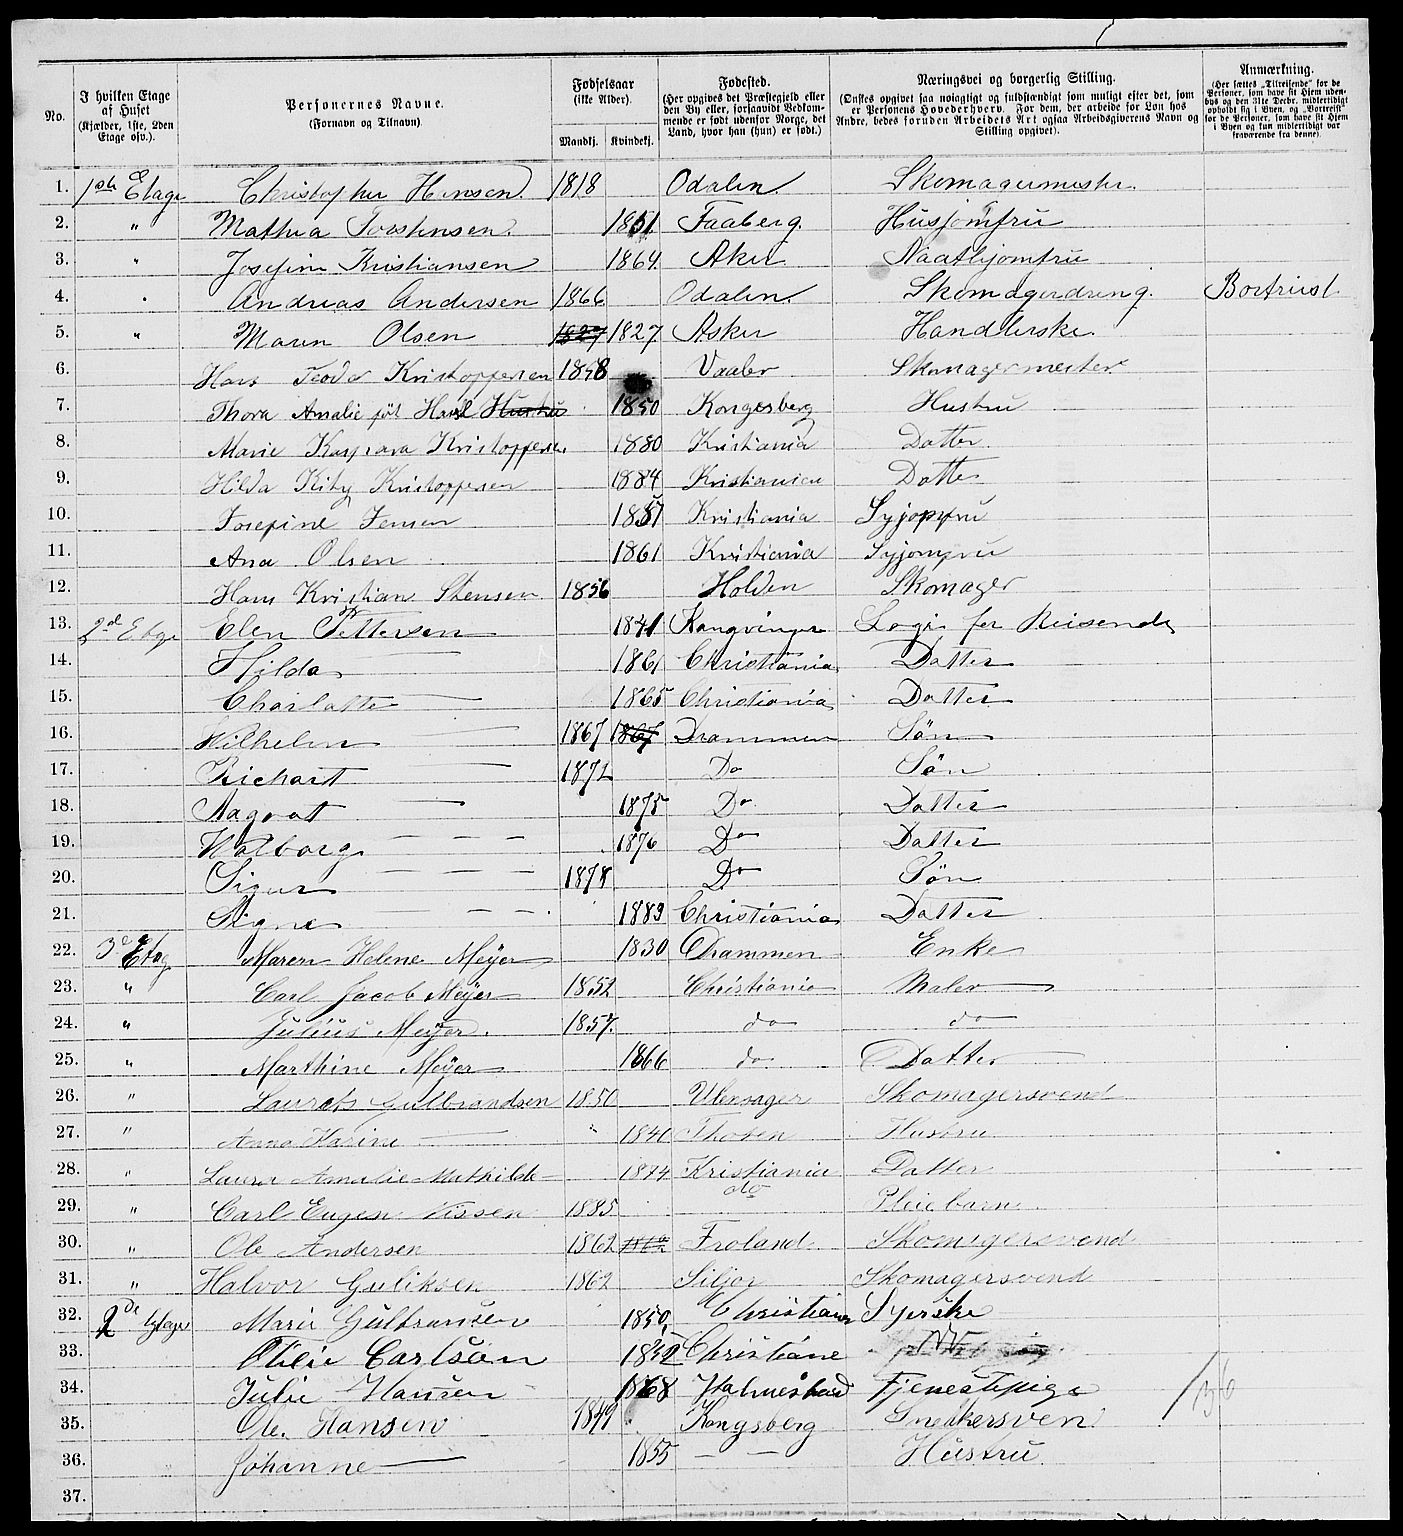 No. | I hvilken Etage af Huset (Kjælder, 1ste, 2den Etage osv.). | Personernes Navne. (Fornavn og Tilnavn). | Fødselsaar (ikke Alder). Mandkj. | Kvindekj. | Fødested. (Her opgives det Præstegjeld eller den By eller, forsaavidt Vedkommende er født udenfor Norge, det Land, hvor han (hun) er født.) | Næringsvei og borgerlig Stilling. (Ønskes opgivet saa nøiagtigt og fuldstændigt som muligt efter det, som er Personens Hovederhverv. For dem, der arbeide for Løn hos Andre, bedes foruden Arbeidets Art ogsaa Arbeidsgiverens Navn og Stilling opgivet). | Anmærkning. (Her sættes „Tilreisende“ for de Personer, som have sit Hjem udenbys og den 31te Decbr. midlertidigt opholdt sig i Byen, og „Bortreist“ for de Personer, som have sit Hjem i Byen og kun midlertidigt var fraværende fra denne).
1. 1ste Etage Christopher Hansen 1818 Odalen Skomagermester
2. " Mathea Torstensen 1851 Faaberg Husjomfru
3. " Josefine Kristiansen 1864 Aker Naatlejomfru
4. " Andreas Andersen 1866 Odalen Skomagerdreng Bortreist
5. " Maren Olsen 1827 1827 Asker Handlerske
6. Hans Teodor Kristoffersen 1848 Vaaler Skomagermester
7. Thora Amalie föt Hustru 1850 Kongesberg Hustru
8. Marie Kaspara Kristoffersen 1880 Kristiania Datter
9. Hilda Kity Kristoffersen 1884 Kristiania Datter
10. Josefine Jensen 1857 Kristiania Syjomfru
11. Ana Olsen 1861 Kristiania Syjomfru
12. Hans Kristian Stensen 1856 Holden Skomager
13. 2d Etage Elen Pettersen 1841 Kongvinger Logi for Reisende
14. Hilda — 1861 Christiania Datter
15. Charlatte — 1865 Christiania Datter
16. Wilhelm — 1867 1867 Drammen Søn
17. Richart — 1872 Do Søn
18. Aagot — 1875 Do Datter
19. Walborg — — — 1876 Do Datter
20. Sigur — — — 1878 Do Søn
21. Signe — — 1883 Christiania Datter
22. 3d Etag Maren Helene Meÿer 1830 Drammen Enke
23. " Carl Jacob Meÿer 1852 Christiania Maler
24. " Julius Meÿer 1857 do do
25. " Marthine Meÿer 1866 do Datter
26. " Laurets Gulbrandsen 1850 Ulensager Skomagersvend
27. " Anna Karine — " 1840 Hustru
28. " Laura Amalie Mathilde — 1874 Kristiania Datter
29. " Carl Eugen Nissen 1885 do Pleiebarn
30. " Ole Andersen 1862 1862 Froland Skomagersvend
31. " Halvor Guliksen 1862 Siljor Skomagersvend
32. 2de Etage Marie Gulbransen 1850 Christiania Syerske
33. Otilie Carlsen 1852 Christiane
34. Julie Hansen 1868 Halmestad Tjenestepige
35. Ole Hansen 1849 Kongsberg Snekkersven 136
36. Johanne — 1855 — — Hustru
37.